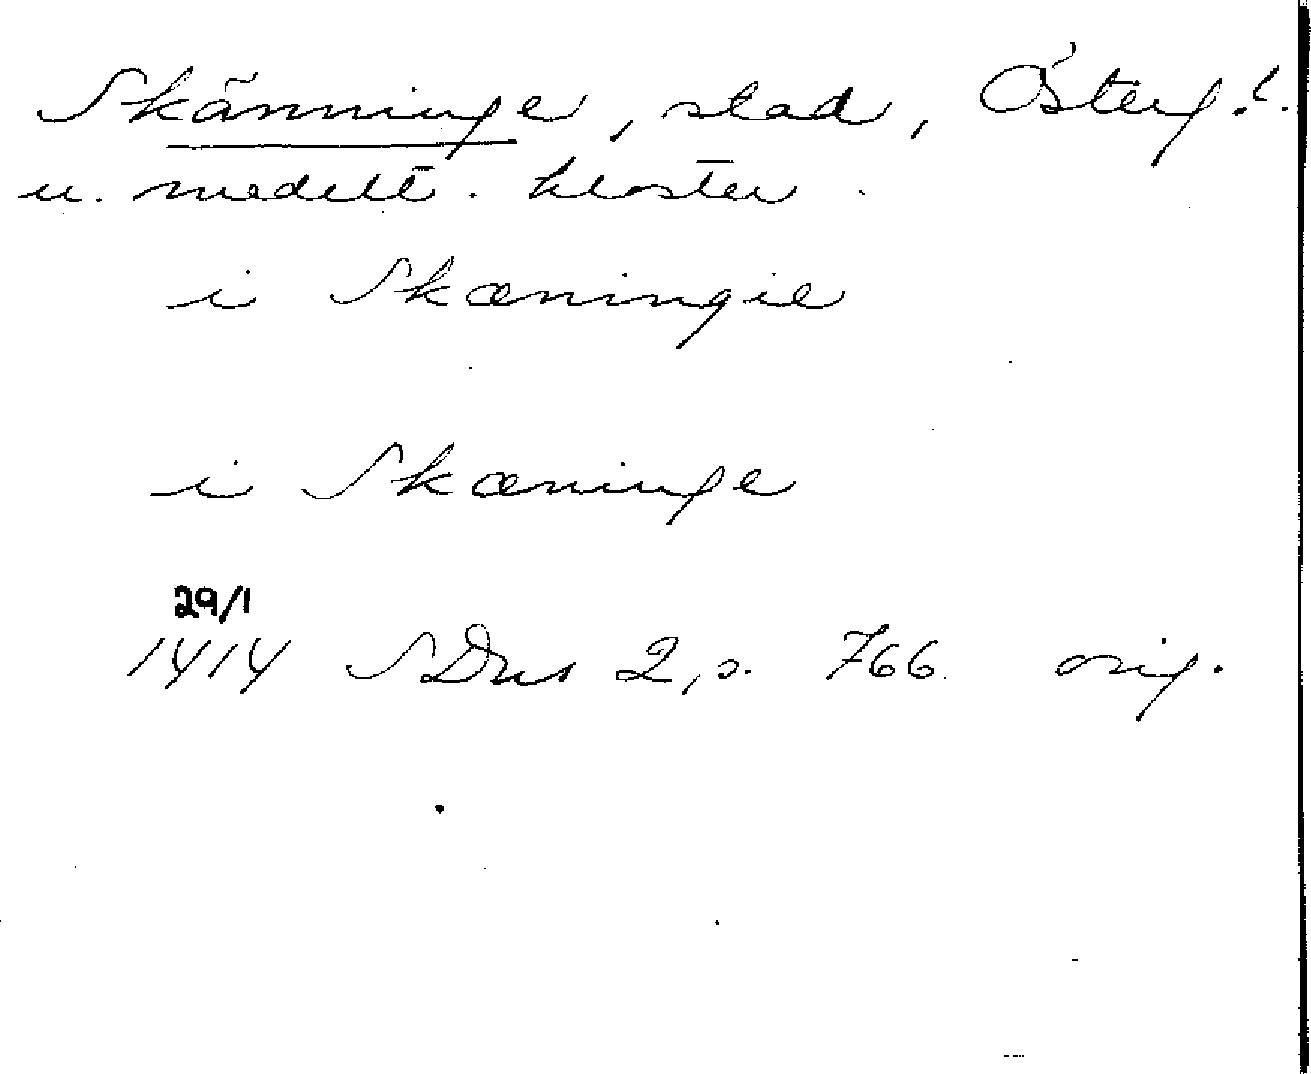 Skänninge, stad, Österg.l.
u. medelt. kloster.
i Skæningie
i Skæninge
29/1
1414 SDns 2, s. 766. orig.